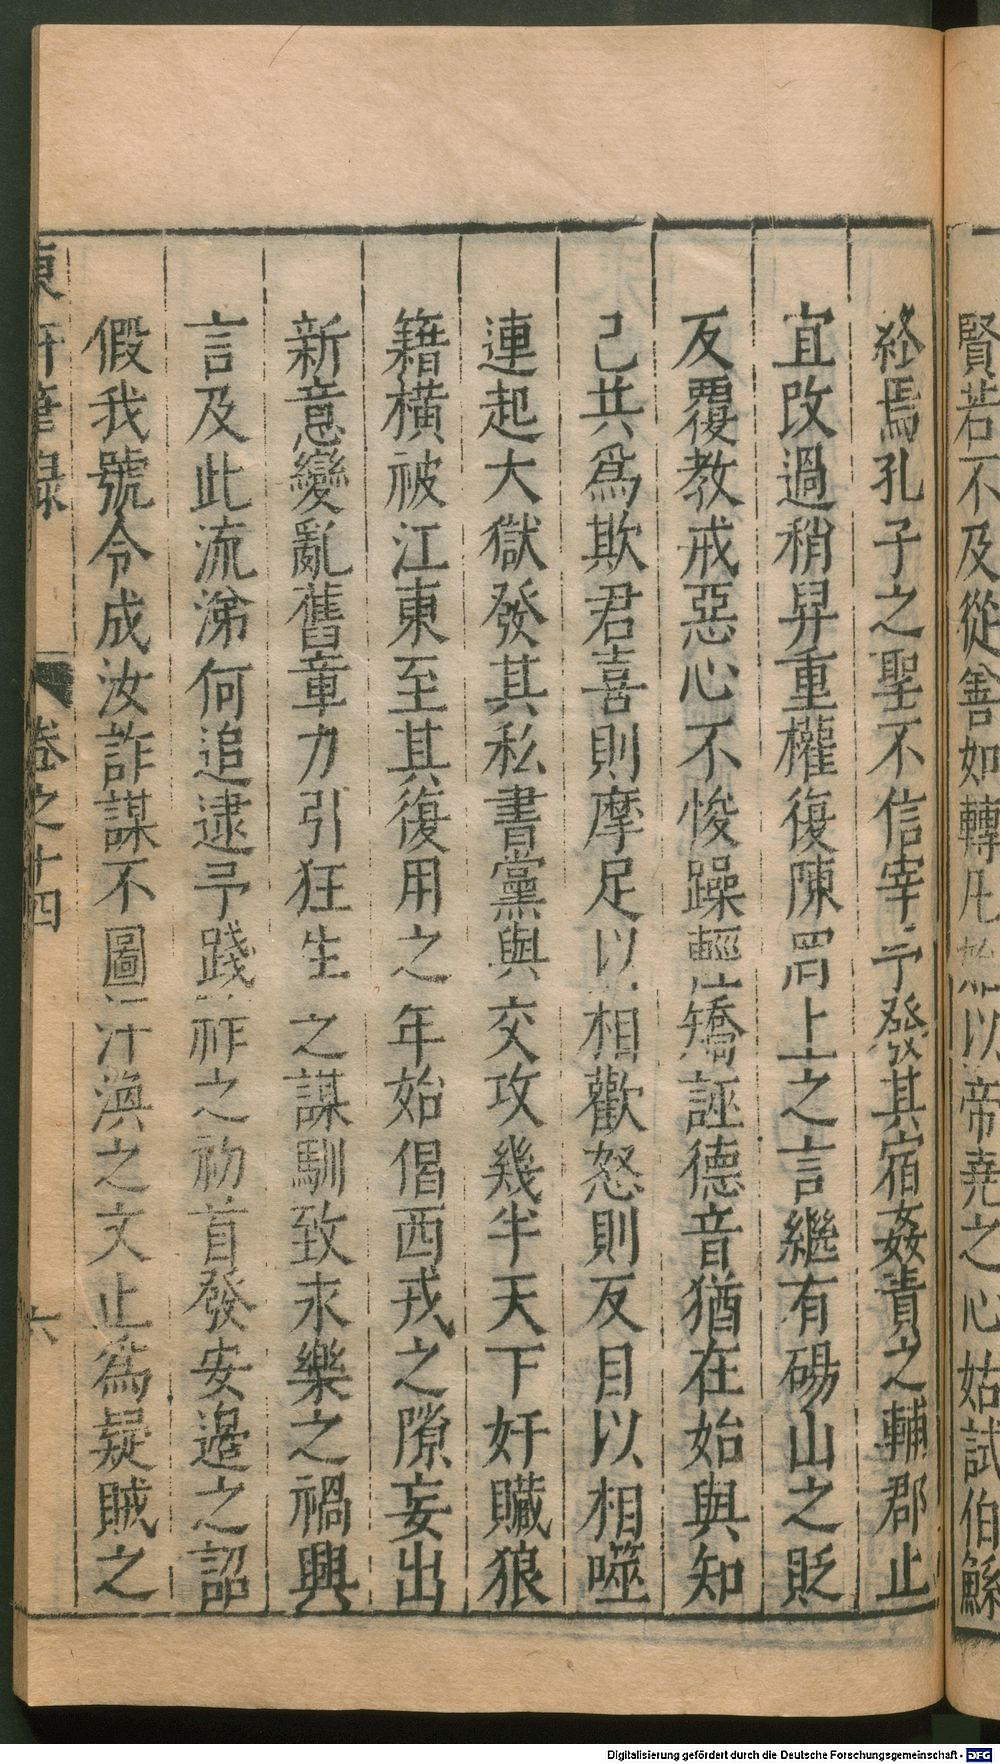 賢若不及從善如轉凡始以帝堯之心姑試伯鯀
終焉孔子之聖不信宰予發其宿姦責之輔郡止
宜改過稍昇重權復陳罔上之言繼有碭山之貶
反覆教戒惡心不悛躁輕矯誣德音猶在始與知
己共爲欺君喜則摩足以相歡怒則反目以相噬
連起大獄發其私書黨與交攻幾半天下奸贓狼
籍橫被江東至其復用之年始倡西戎之隙妄出
新意變亂舊章力引狂生之謀馴致永樂之禍興
言及此流涕何追逮予踐祚之初首發安邊之詔
假我號令成汝詐謀不圖汗渙之文止爲疑賊之
東軒筆錄
卷之十四
六
Digitalisierung gefördert durch die Deutsche Forschungsgemeinschaft - DFG